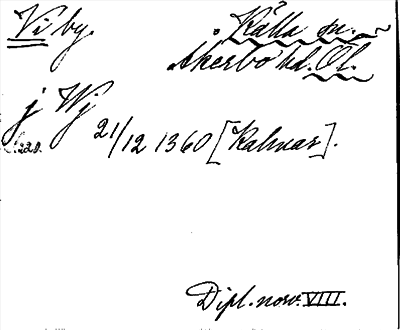 Vi by.
Källa sn.
Åkerbo hd. Öl.
j Wj
21/12 1360 [Kalmar].
Dipl. norv. VIII.